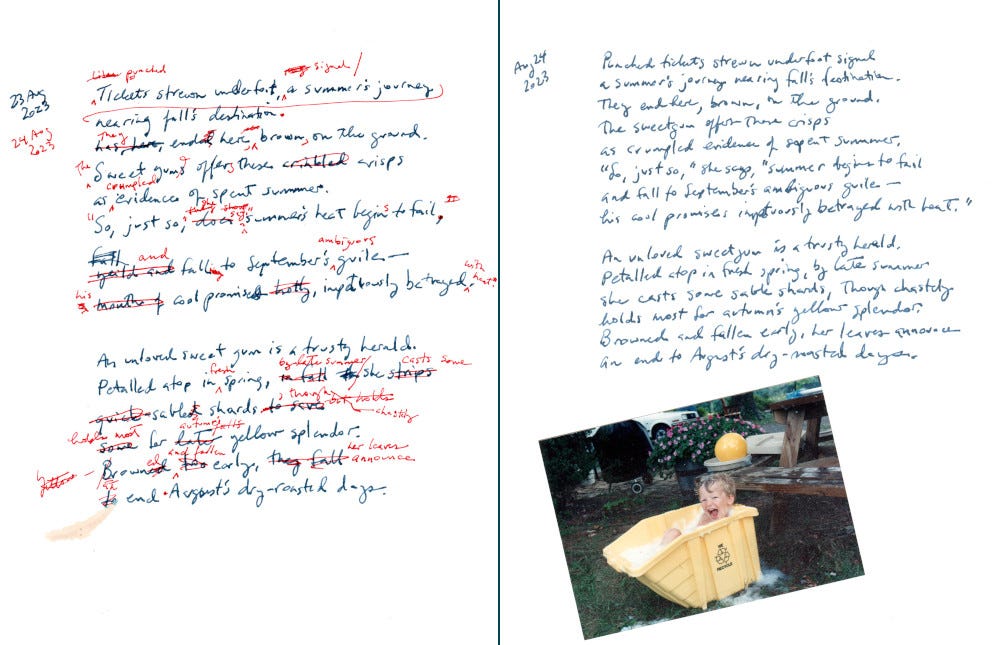 punched
signal
23 Aug
2023
Tickets strewn underfoot, a summer's journey
nearing fall's destination.
24 Aug
2023
They
has, here, ended here, brown, on the ground.
The
Sweet gum offers these crinkled crisps
crumpled
as evidence of spent summer.
she
"So, just so," does "summer's heat begins to fail,
and ambiguous
fall
yeild and falling to September's guile—
with
his heat."
month's cool promises hotly, impetuously betrayed.
An unloved sweet gum is a trusty herald.
fresh by late summer casts some
Petalled atop in spring, in fall she strips
though
quick sabled shards to save but holds
chastity
holds most autumn's
some for later yellow splendor.
and fallen her leaves
Browned too early, they fall announce
an
to end August's dry-roasted days.
Aug 24
2023
Punched tickets strewn underfoot signal
a summer's journey nearing fall's destination.
They end here, brown, on the ground.
The sweetgum offers these crisps
as crumpled evidence of spent summer.
"So, just so," she says, "summer begins to fail
and fall to September's ambiguous guile—
his cool promises impetuously betrayed with heat."
An unloved sweetgum is a trusty herald.
Petalled atop in fresh spring, by late summer
she casts some sable shards, Though chastity
holds most for autumn's yellow splendor.
Browned and fallen early, her leaves announce
an end to August's dry-roasted days.
WE
RECYCLE